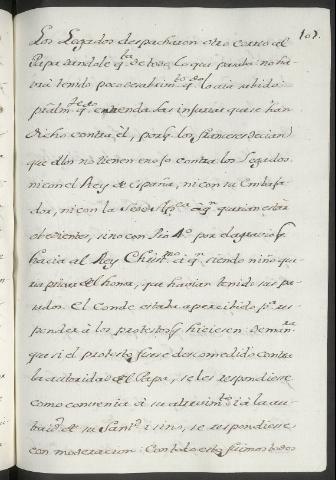 107.
Los Legados despacharon otro correo al
Papa dandole q.ta de todo lo que pasaba no ha
via tenido poco sentim.to de lo
q.e entendia las injurias que se han
dicho contra él, porq.e los franceses decian
que ellos no tienen enojo contra los Legados
ni con el Rey de España, ni con su Embaxa
dor, ni con la Sede App.ca á q.n querian estar
obedientes, sino con Pio 4.o por el agravio q.e
hacia al Rey Christ.mo á q.n siendo niño que
ria privar del honor, que havian tenido sus pa
sados. El Conde estaba apercibido p.a res
ponder á los protestos q.e hiciesen: De man.ra
que si el protesto fuese descomedido contra
la autoridad del Papa, se les respondiese
como convenia á su atrevim.to i á la au
torid.d de su Sant.d i sino, se respondiese
con moderacion: Con todo esto fuimos todos